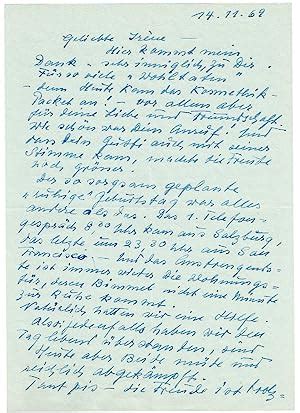 14.11.69
Geliebte Irène —
Hier kommt mein
Dank – sehr inniglich, zu Dir.
Für so viele "Wohltaten"
– denn Heute kam das Kosmetik-
Packet an! – vor allem aber
für deine Liebe und Freundschaft.
Wie schön war Dein Anruf! Und
dass dein Gütti auch mit seiner
Stimme kam, machte die Freude
noch grösser.
Der so sorgsam geplante
"ruhige" Geburtstag war alles
andere als das. Das 1. Telefon-
gespräch 8,00 Uhr kam aus Salzburg,
das letzte um 23,30 Uhr aus San
Francisco. – Und das Anstrengends-
te ist immer wieder die Wohnungs-
tür, deren Bimmel nicht eine Minute
zur Ruhe kommt.
Natürlich hatten wir eine Hilfe
Also: jedenfalls haben wir den
Tag lebend überstanden, und
Heute aber Beide müde und
reichlich abgekämpft.
Tant pis – die Freude ist trotz-